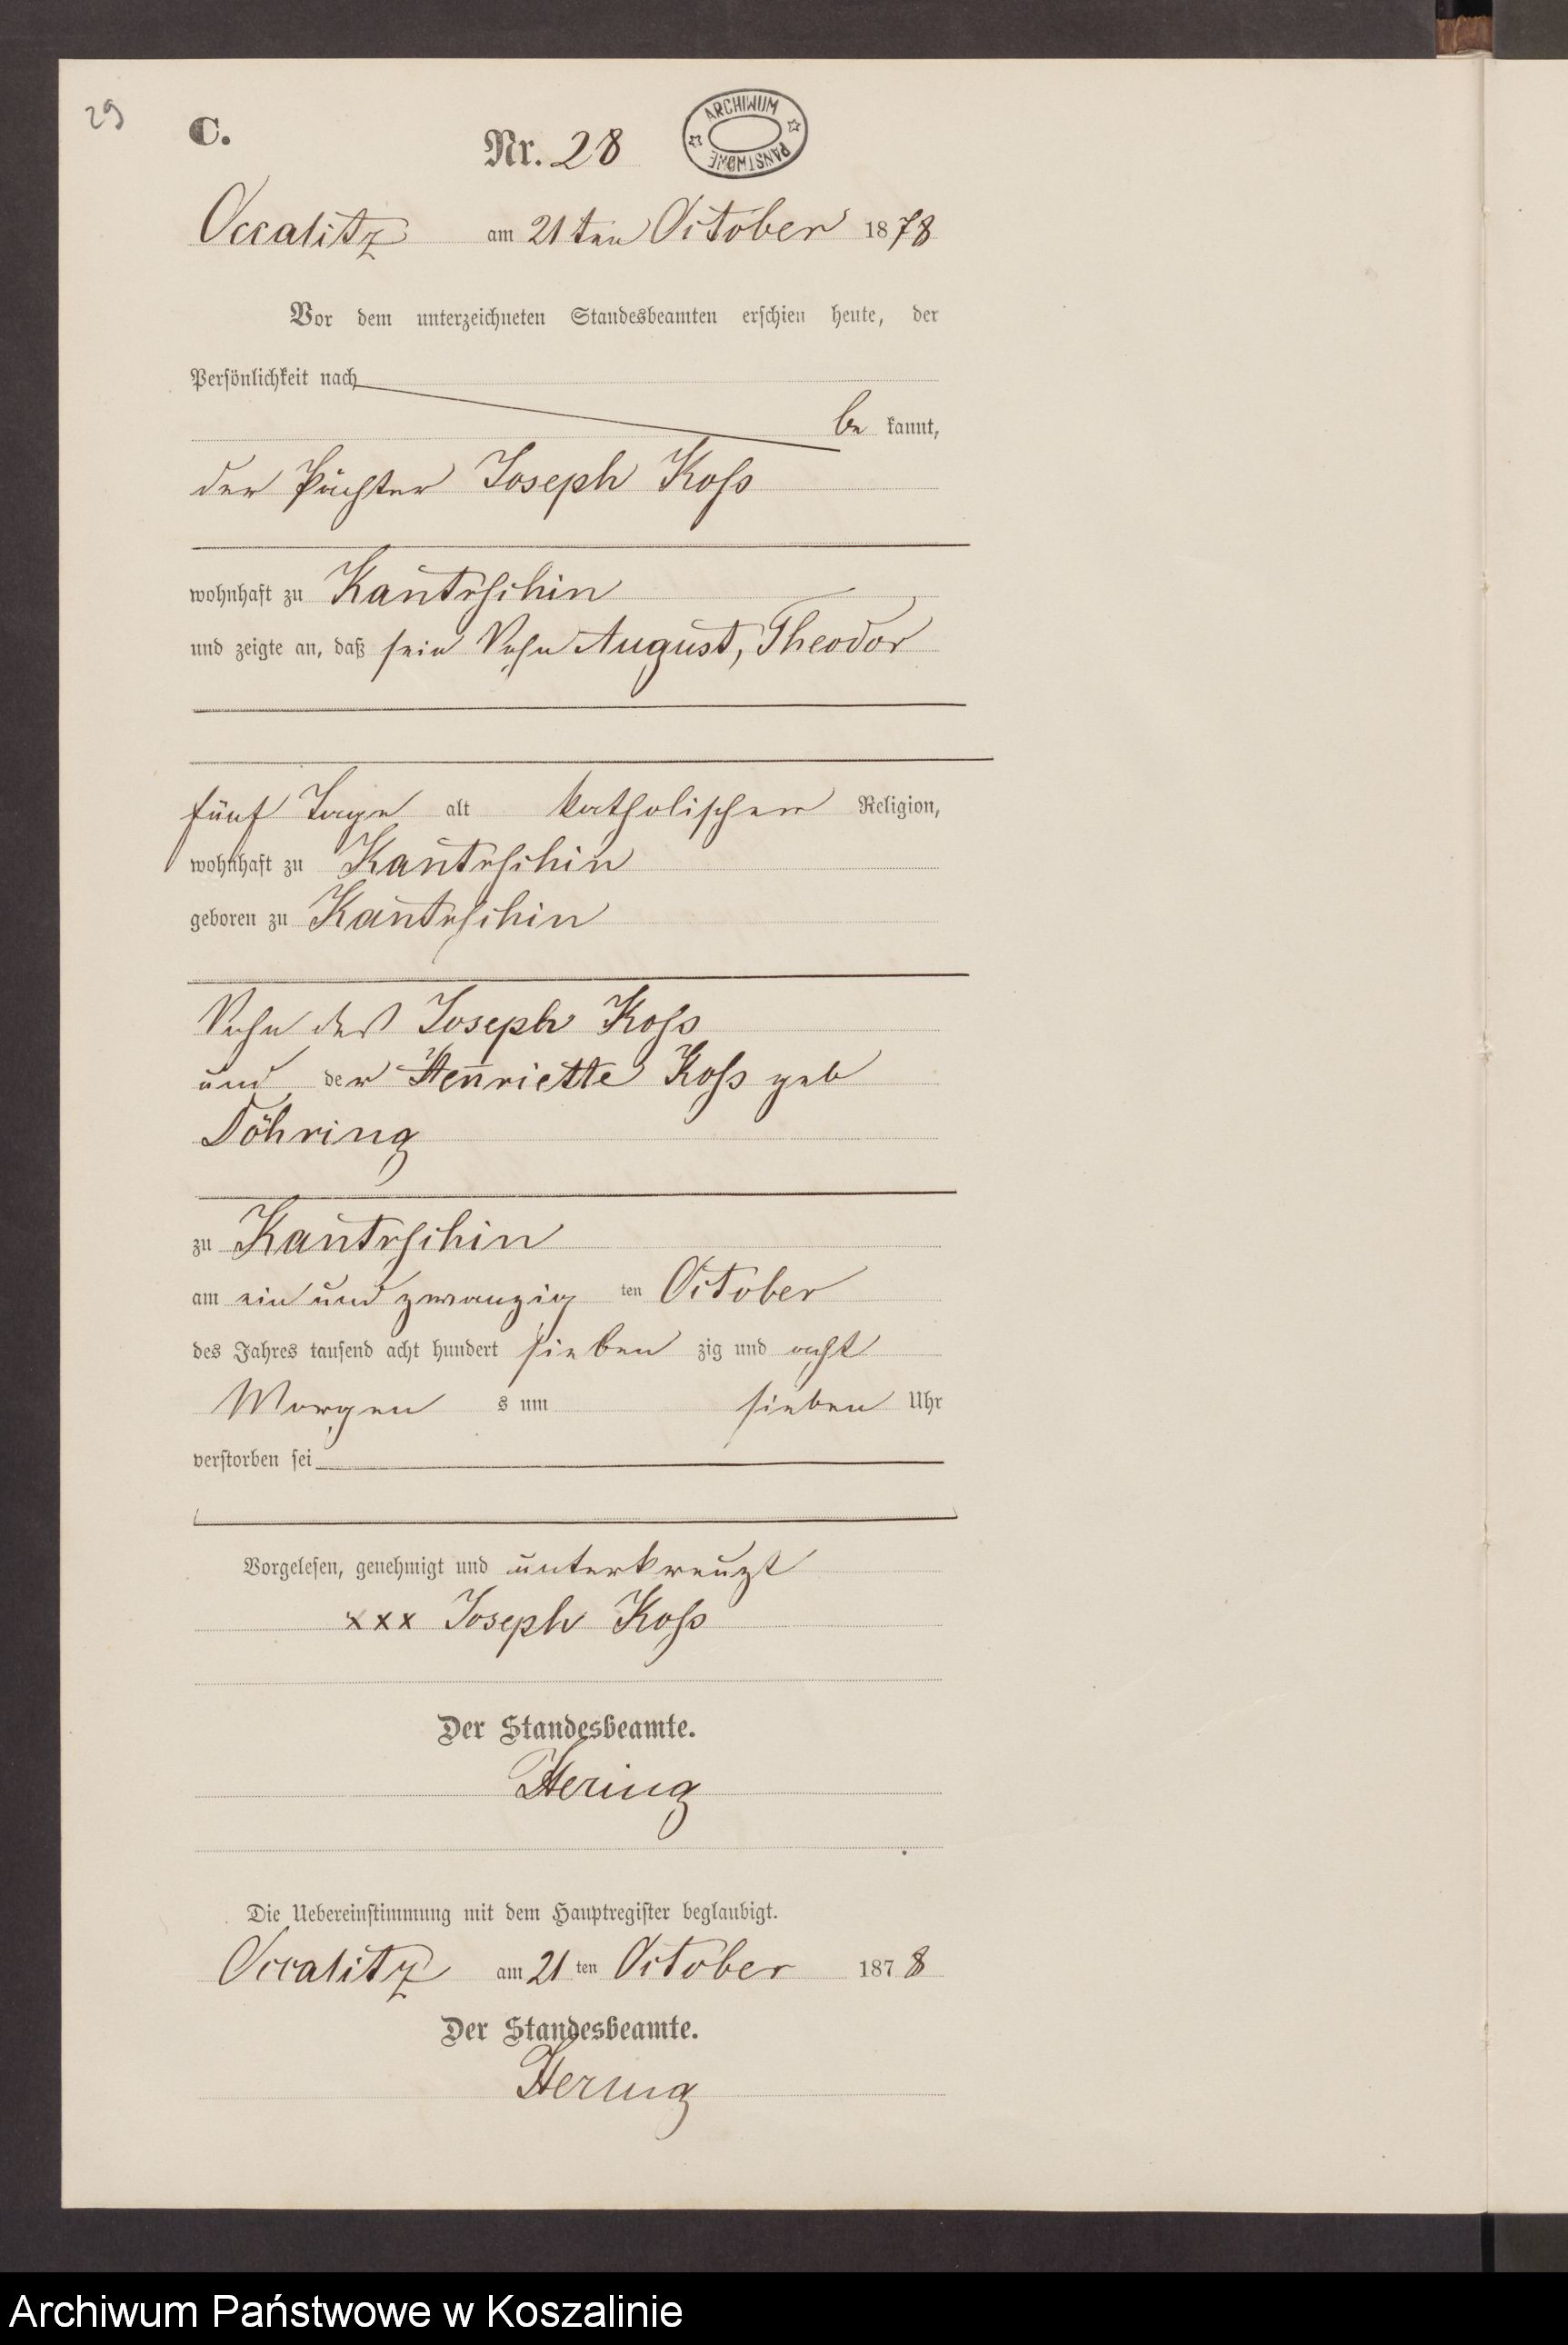 29
C.
Nr. 28
ARCHIWUM PAŃSTWOWE
Occalitz am 21ten October 1878
Vor dem unterzeichneten Standesbeamten erschien heute, der
Persönlichkeit nach
be kannt,
der Pächter Joseph Koss
wohnhaft zu Kantrschin
und zeigte an, daß sein Sohn August, Theodor
fünf Tage alt katholischer Religion,
wohnhaft zu Kantrschin
geboren zu Kantrschin
Sohn des Joseph Koss
und der Henriette Koss geb
Döhring
zu Kantrschin
am ein und zwanzig ten October
des Jahres tausend acht hundert sieben zig und acht
Morgen s um sieben Uhr
verstorben sei
Vorgelesen, genehmigt und unterkreuzt
xxx Joseph Koss
Der Standesbeamte.
Hering
Die Uebereinstimmung mit dem Hauptregister beglaubigt.
Occalitz am 21 ten October 1878
Der Standesbeamte.
Hering
Archiwum Państwowe w Koszalinie